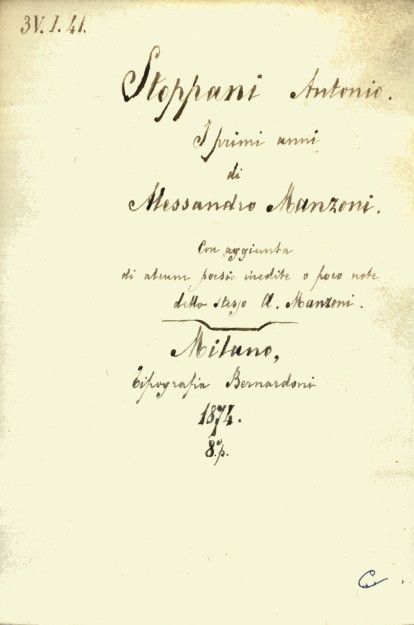 3V. I. 41.
Stoppani Antonio.
I primi anni
di
Alessandro Manzoni.
Con aggiunta
di alcune poesie inedite o poco note
dello stesso A. Manzoni.
Milano,
Tipografia Bernardoni
1874.
8.º p.